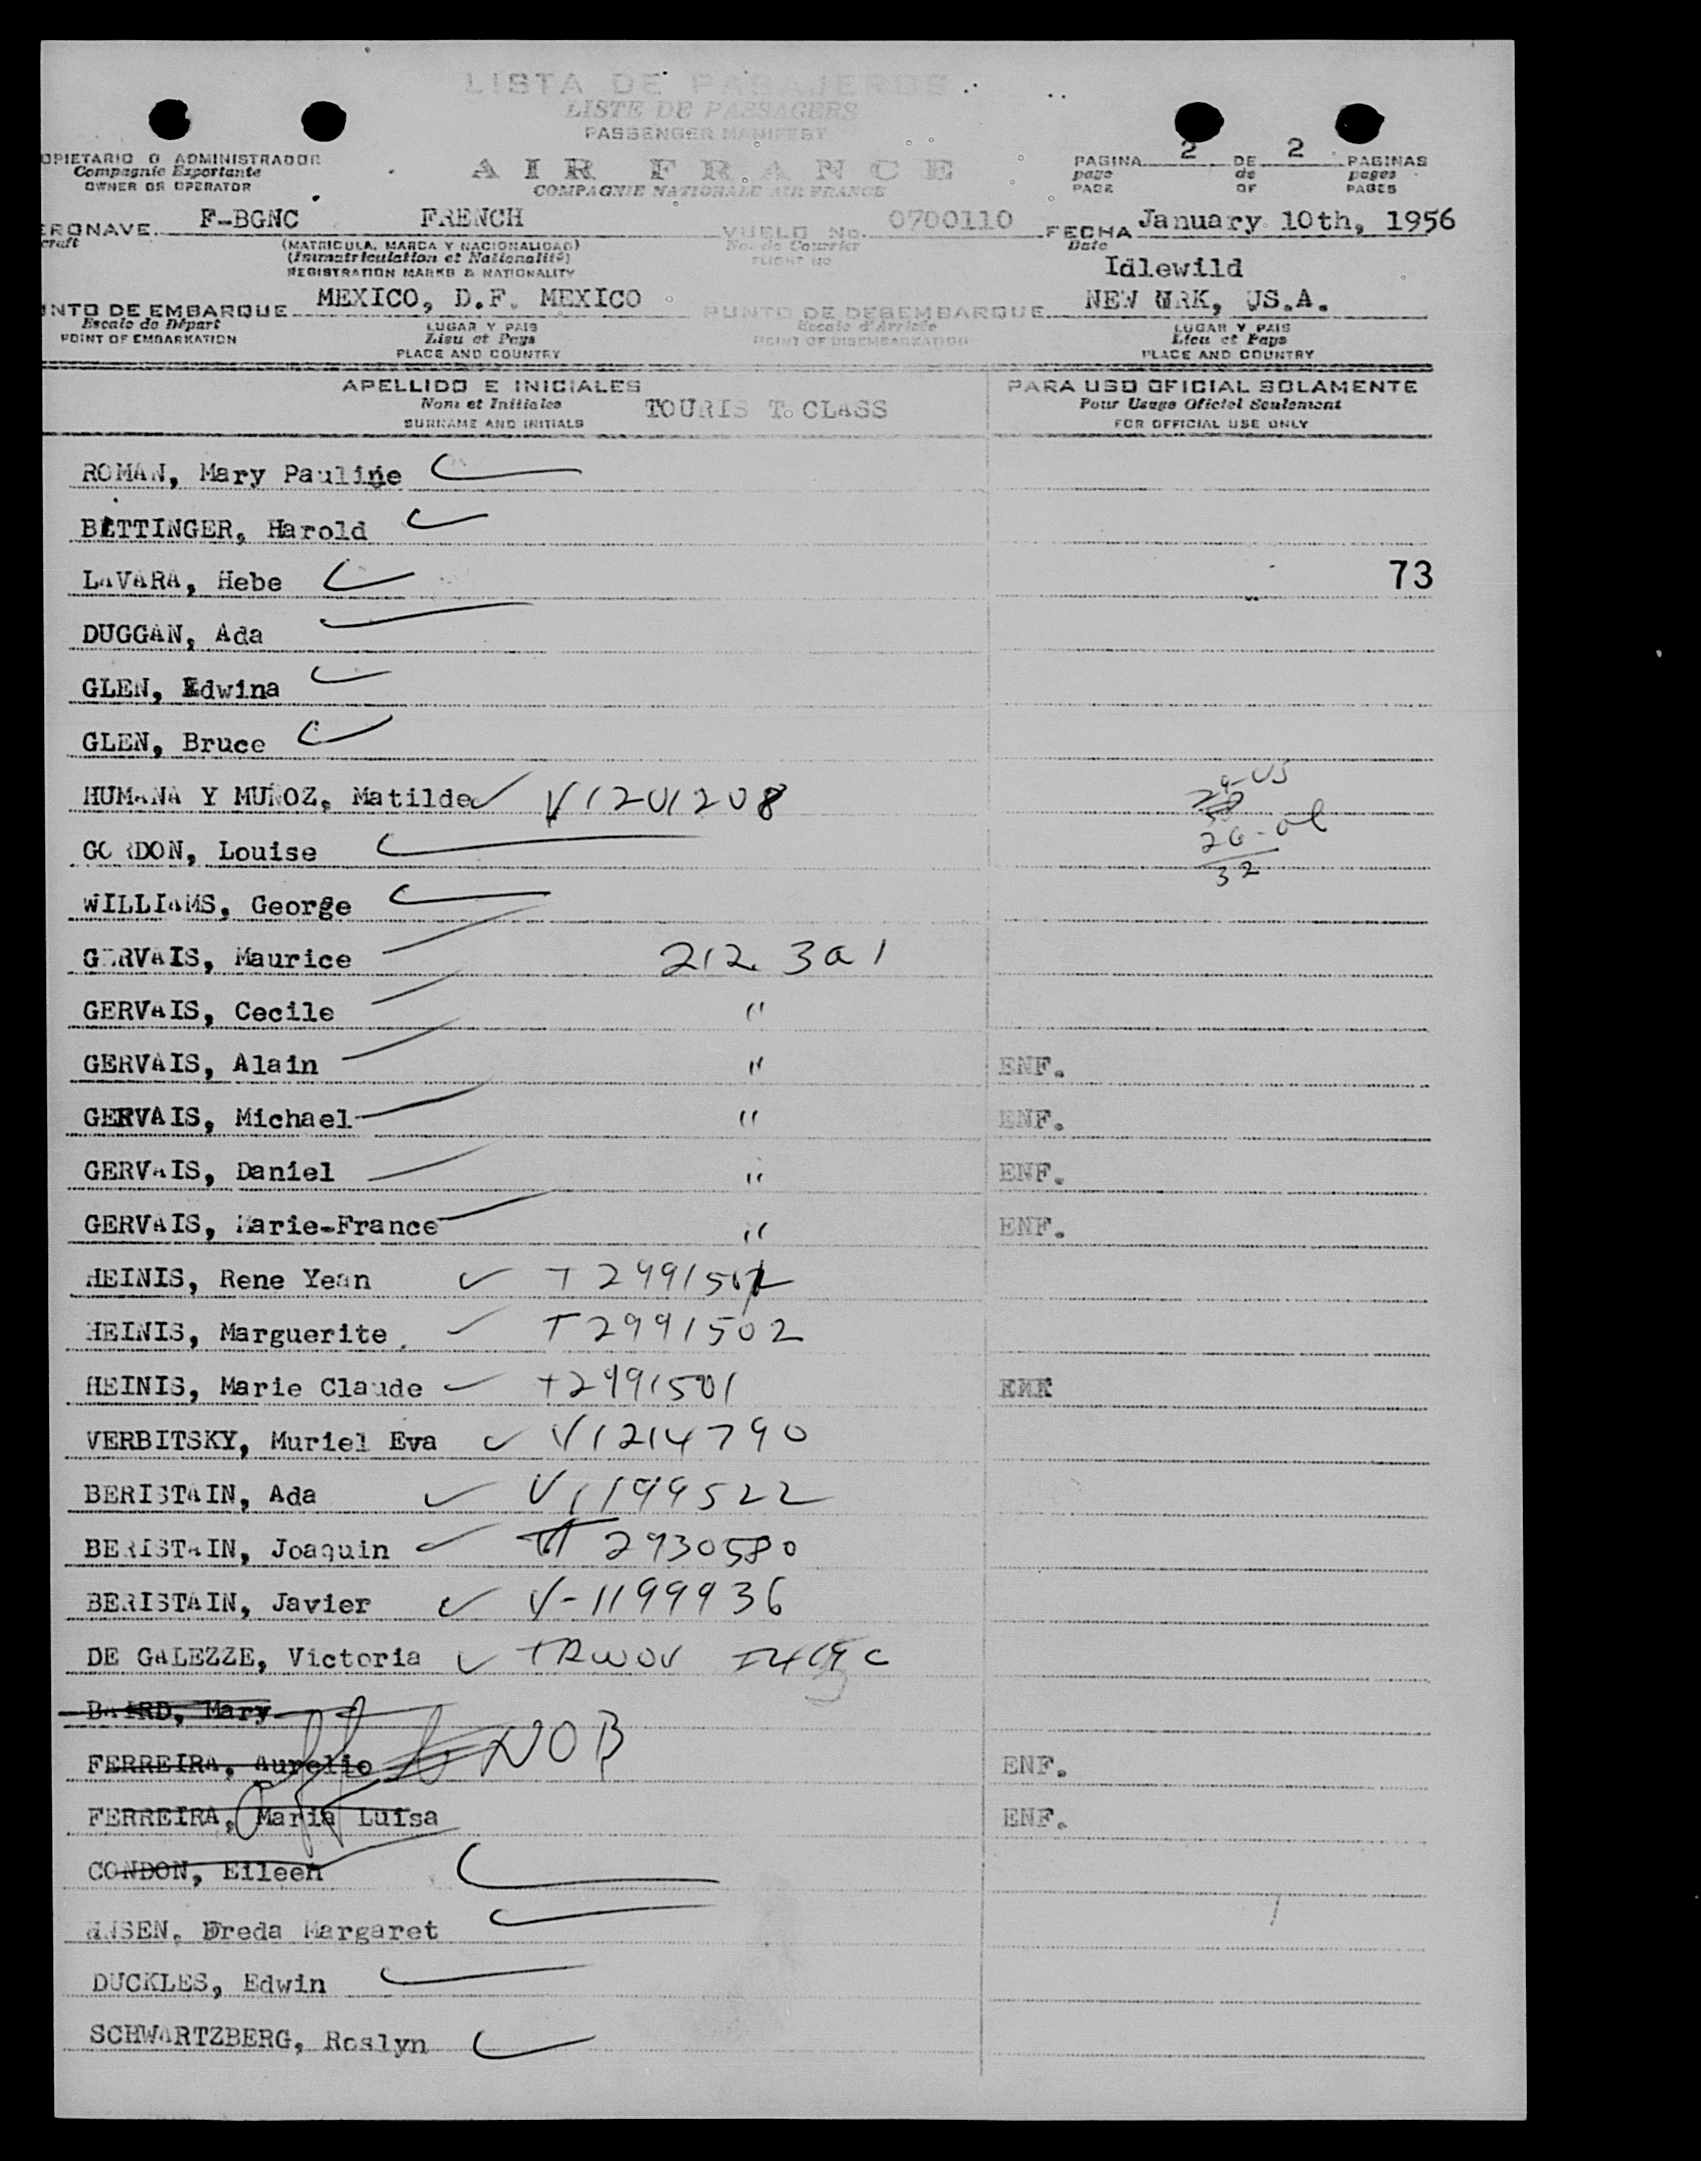 LISTA DE PASAJEROS
LISTE DE PASSAGERS
PASSENGER MANIFEST
AIR FRANCE
COMPAGNIE NATIONALE AIR FRANCE
OPIETARIO O ADMINISTRADOR
Compagnie Exportante
OWNER OR OPERATOR
PAGINA 2 DE 2 PAGINAS
page de pages
PAGE OF PAGES
ERONAVE F-BGNC FRENCH VUELO No. 0700110 FECHA January 10th, 1956
craft (MATRICULA, MARCA Y NACIONALIDAD) No. de Courrier Date
(Immatriculation et Nationalité) FLIGHT NO
REGISTRATION MARKS & NATIONALITY
Idlewild
NTO DE EMBARQUE MEXICO, D.F. MEXICO PUNTO DE DESEMBARQUE NEW YORK, US.A.
Escale de Départ LUGAR Y PAIS Escale d'Arrivée LUGAR Y PAIS
POINT OF EMBARKATION Lieu et Pays POINT OF DISEMBARKATION Lieu et Pays
PLACE AND COUNTRY PLACE AND COUNTRY
APELLIDO E INICIALES PARA USO OFICIAL SOLAMENTE
Nom et Initiales TOURIS T. CLASS Pour Usage Oficiel Seulement
SURNAME AND INITIALS FOR OFFICIAL USE ONLY
ROMAN, Mary Pauline
BITTINGER, Harold
LAVARA, Hebe 73
DUGGAN, Ada
GLEN, Edwina
GLEN, Bruce
HUMANA Y MUÑOZ, Matilde V1201208
GORDON, Louise 26-al
32
WILLIAMS, George
GERVAIS, Maurice 212.3a1
GERVAIS, Cecile "
GERVAIS, Alain " ENF.
GERVAIS, Michael " ENF.
GERVAIS, Daniel " ENF.
GERVAIS, Marie-France " ENF.
HEINIS, Rene Yean
HEINIS, Marguerite T2991502
HEINIS, Marie Claude T2991501
VERBITSKY, Muriel Eva V1214790
BERISTAIN, Ada V1199522
BERISTAIN, Joaquin 2930580
BERISTAIN, Javier V-1199936
DE GALEZZE, Victoria TRWOV
BAIRD, Mary
FERREIRA, Aurelio NOB ENF.
FERREIRA, Maria Luisa ENF.
CONDON, Eileen
Freda Margaret
DUCKLES, Edwin
SCHWARTZBERG, Roslyn